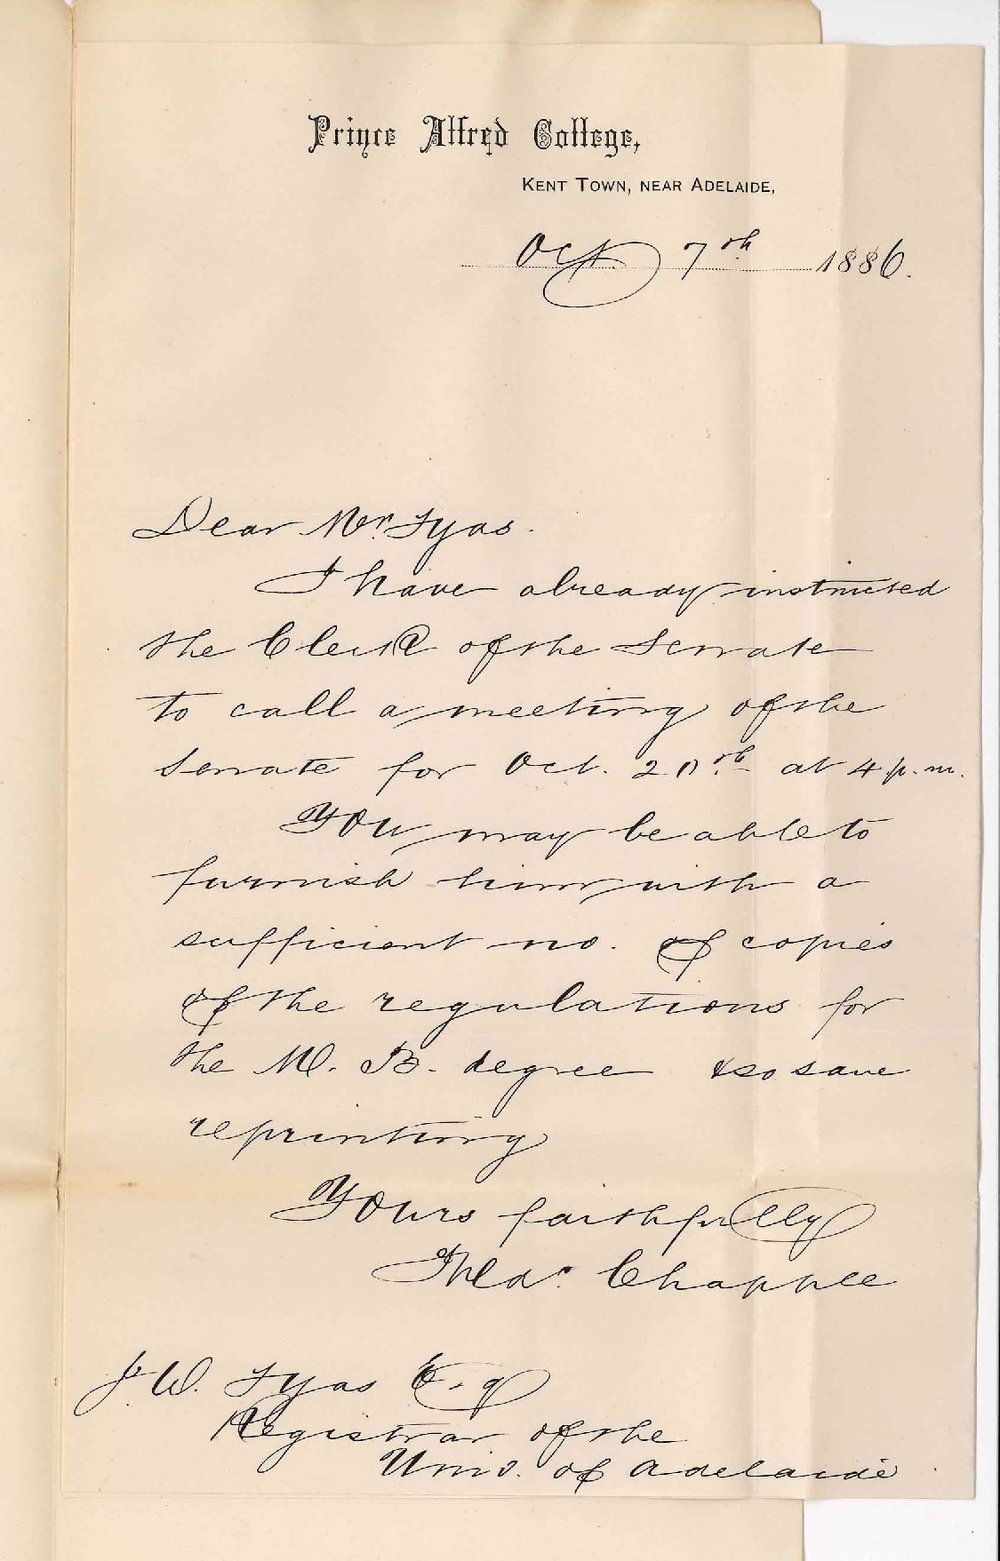 Prince Alfred College,
KENT TOWN, NEAR ADELAIDE,
Oct. 7th 1886.
Dear Mr. Tyas.
I have already instructed
the Clerk of the Senate
to call a meeting of the
Senate for Oct. 20th at 4 p.m.
You may be able to
furnish him with a
sufficient no. of copies
of the regulations for
the M. B. degree & so save
reprinting
Yours faithfully
Chapple
J W. Tyas Esq
Registrar of the
Univ. of Adelaide